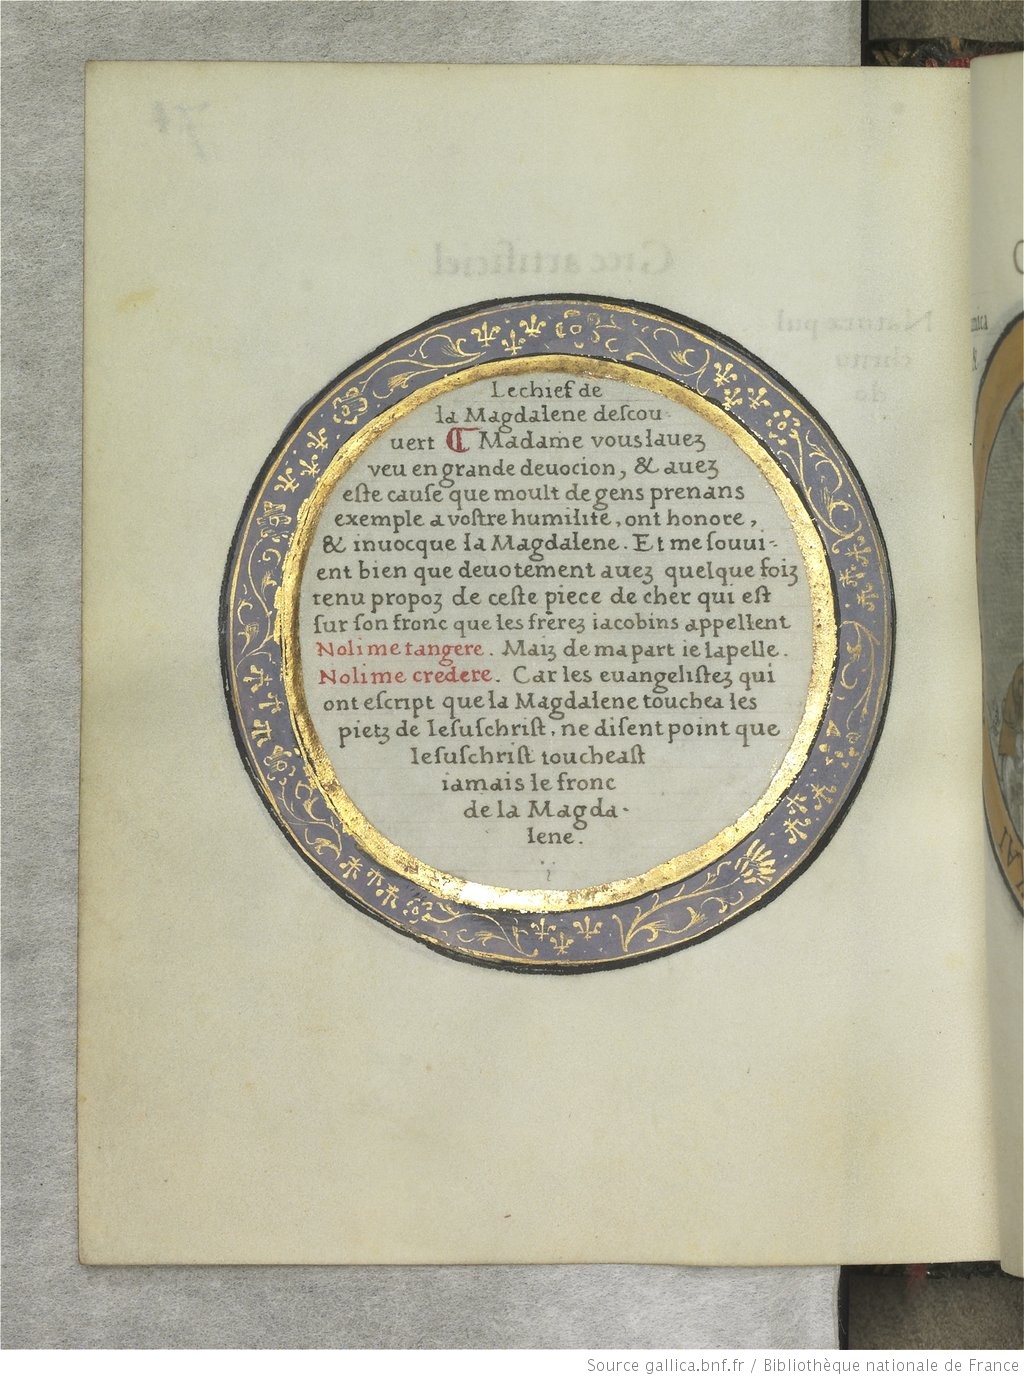 Le chief de
la Magdalene deſcou
uert ¶ Madame vous lauez
veu en grande deuocion, & auez
eſte cauſe que moult de gens prenans
exemple a voſtre humilite, ont honore,
& inuocque la Magdalene. Et me ſouui-
ent bien que deuotement auez quelque foiz
tenu propoz de ceſte piece de cher qui eſt
ſur ſon fronc que les frerez iacobins appellent
Noli me tangere. Maiz de ma part ie lapelle.
Noli me credere. Car les euangeliſtez qui
ont eſcript que la Magdalene touchea les
pietz de Ieſuſchriſt, ne diſent point que
Ieſuſchriſt toucheaſt
iamais le fronc
de la Magda-
lene.
Source gallica.bnf.fr / Bibliothèque nationale de France